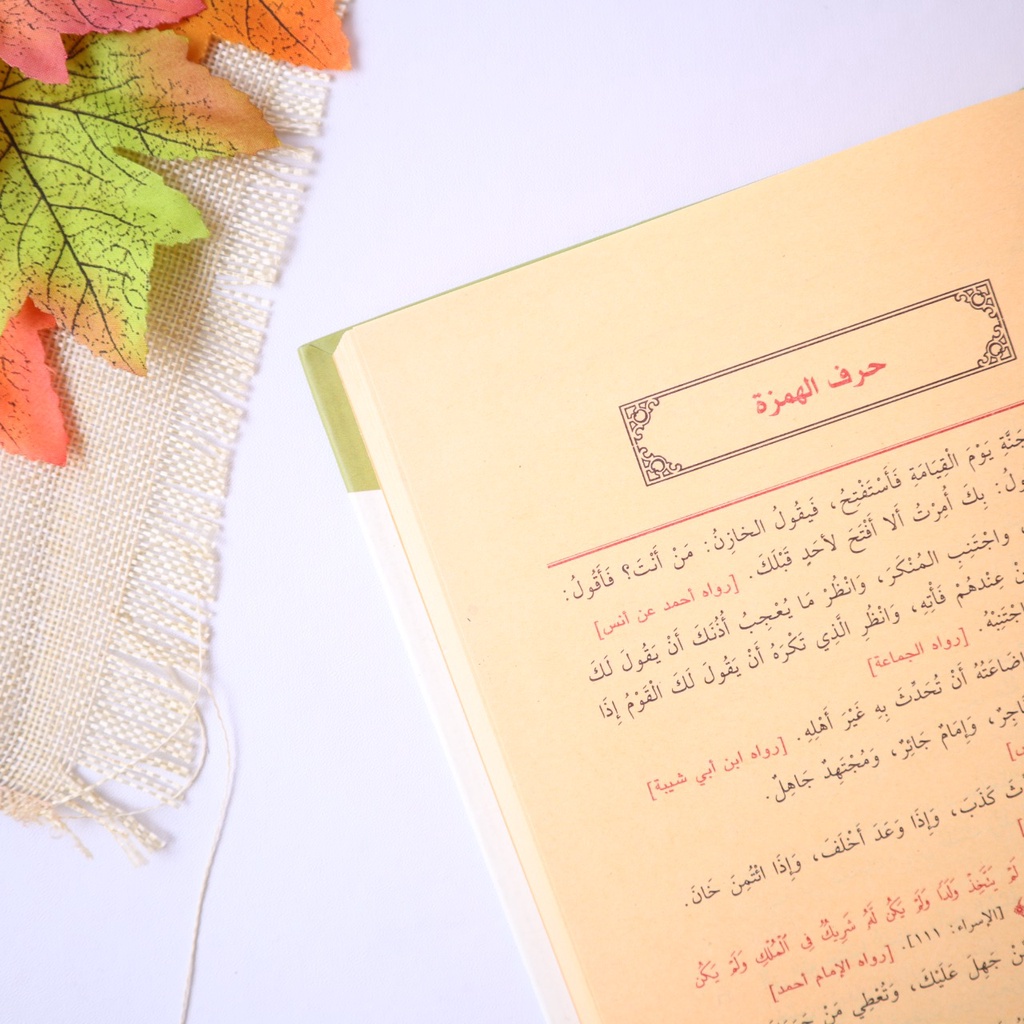 حرف الهمزة
يَوْمَ الْقِيَامَةِ فَأَسْتَفْتِحُ، فَيَقُولُ الخازِنُ: مَنْ أَنْتَ؟ فَأَقُولُ:
بِكَ أُمِرْتُ أَلا أَفْتَحَ لأحَدٍ قَبْلَكَ. [رواه أحمد عن أنس]
واجْتَنِبِ المُنْكَرَ، وَانْظُرْ مَا يُعْجِبُ أُذُنَكَ أَنْ يَقُولَ لَكَ
عِنْدِهُمْ فَأْتِهِ، وَانْظُرِ الَّذِي تَكْرَهُ أَنْ يَقُولَ لَكَ الْقَوْمُ إِذَا
[رواه الجماعة]
أَنْ تُحَدِّثَ بِهِ غَيْرَ أَهْلِهِ. [رواه ابن أبي شيبة]
وَإِمَامٌ جَائِرٌ، وَمُجْتَهِدٌ جَاهِلٌ.
كَذَبَ، وَإِذَا وَعَدَ أَخْلَفَ، وَإِذَا ائْتُمِنَ خَانَ.
لَمْ يَتَّخِذْ وَلَدًا وَلَمْ يَكُن لَّهُ شَرِيكٌ فِي الْمُلْكِ وَلَمْ يَكُن
[الإسراء: ١١١]. [رواه الإمام أحمد]
جَهِلَ عَلَيْكَ، وَتُعْطِي مَنْ